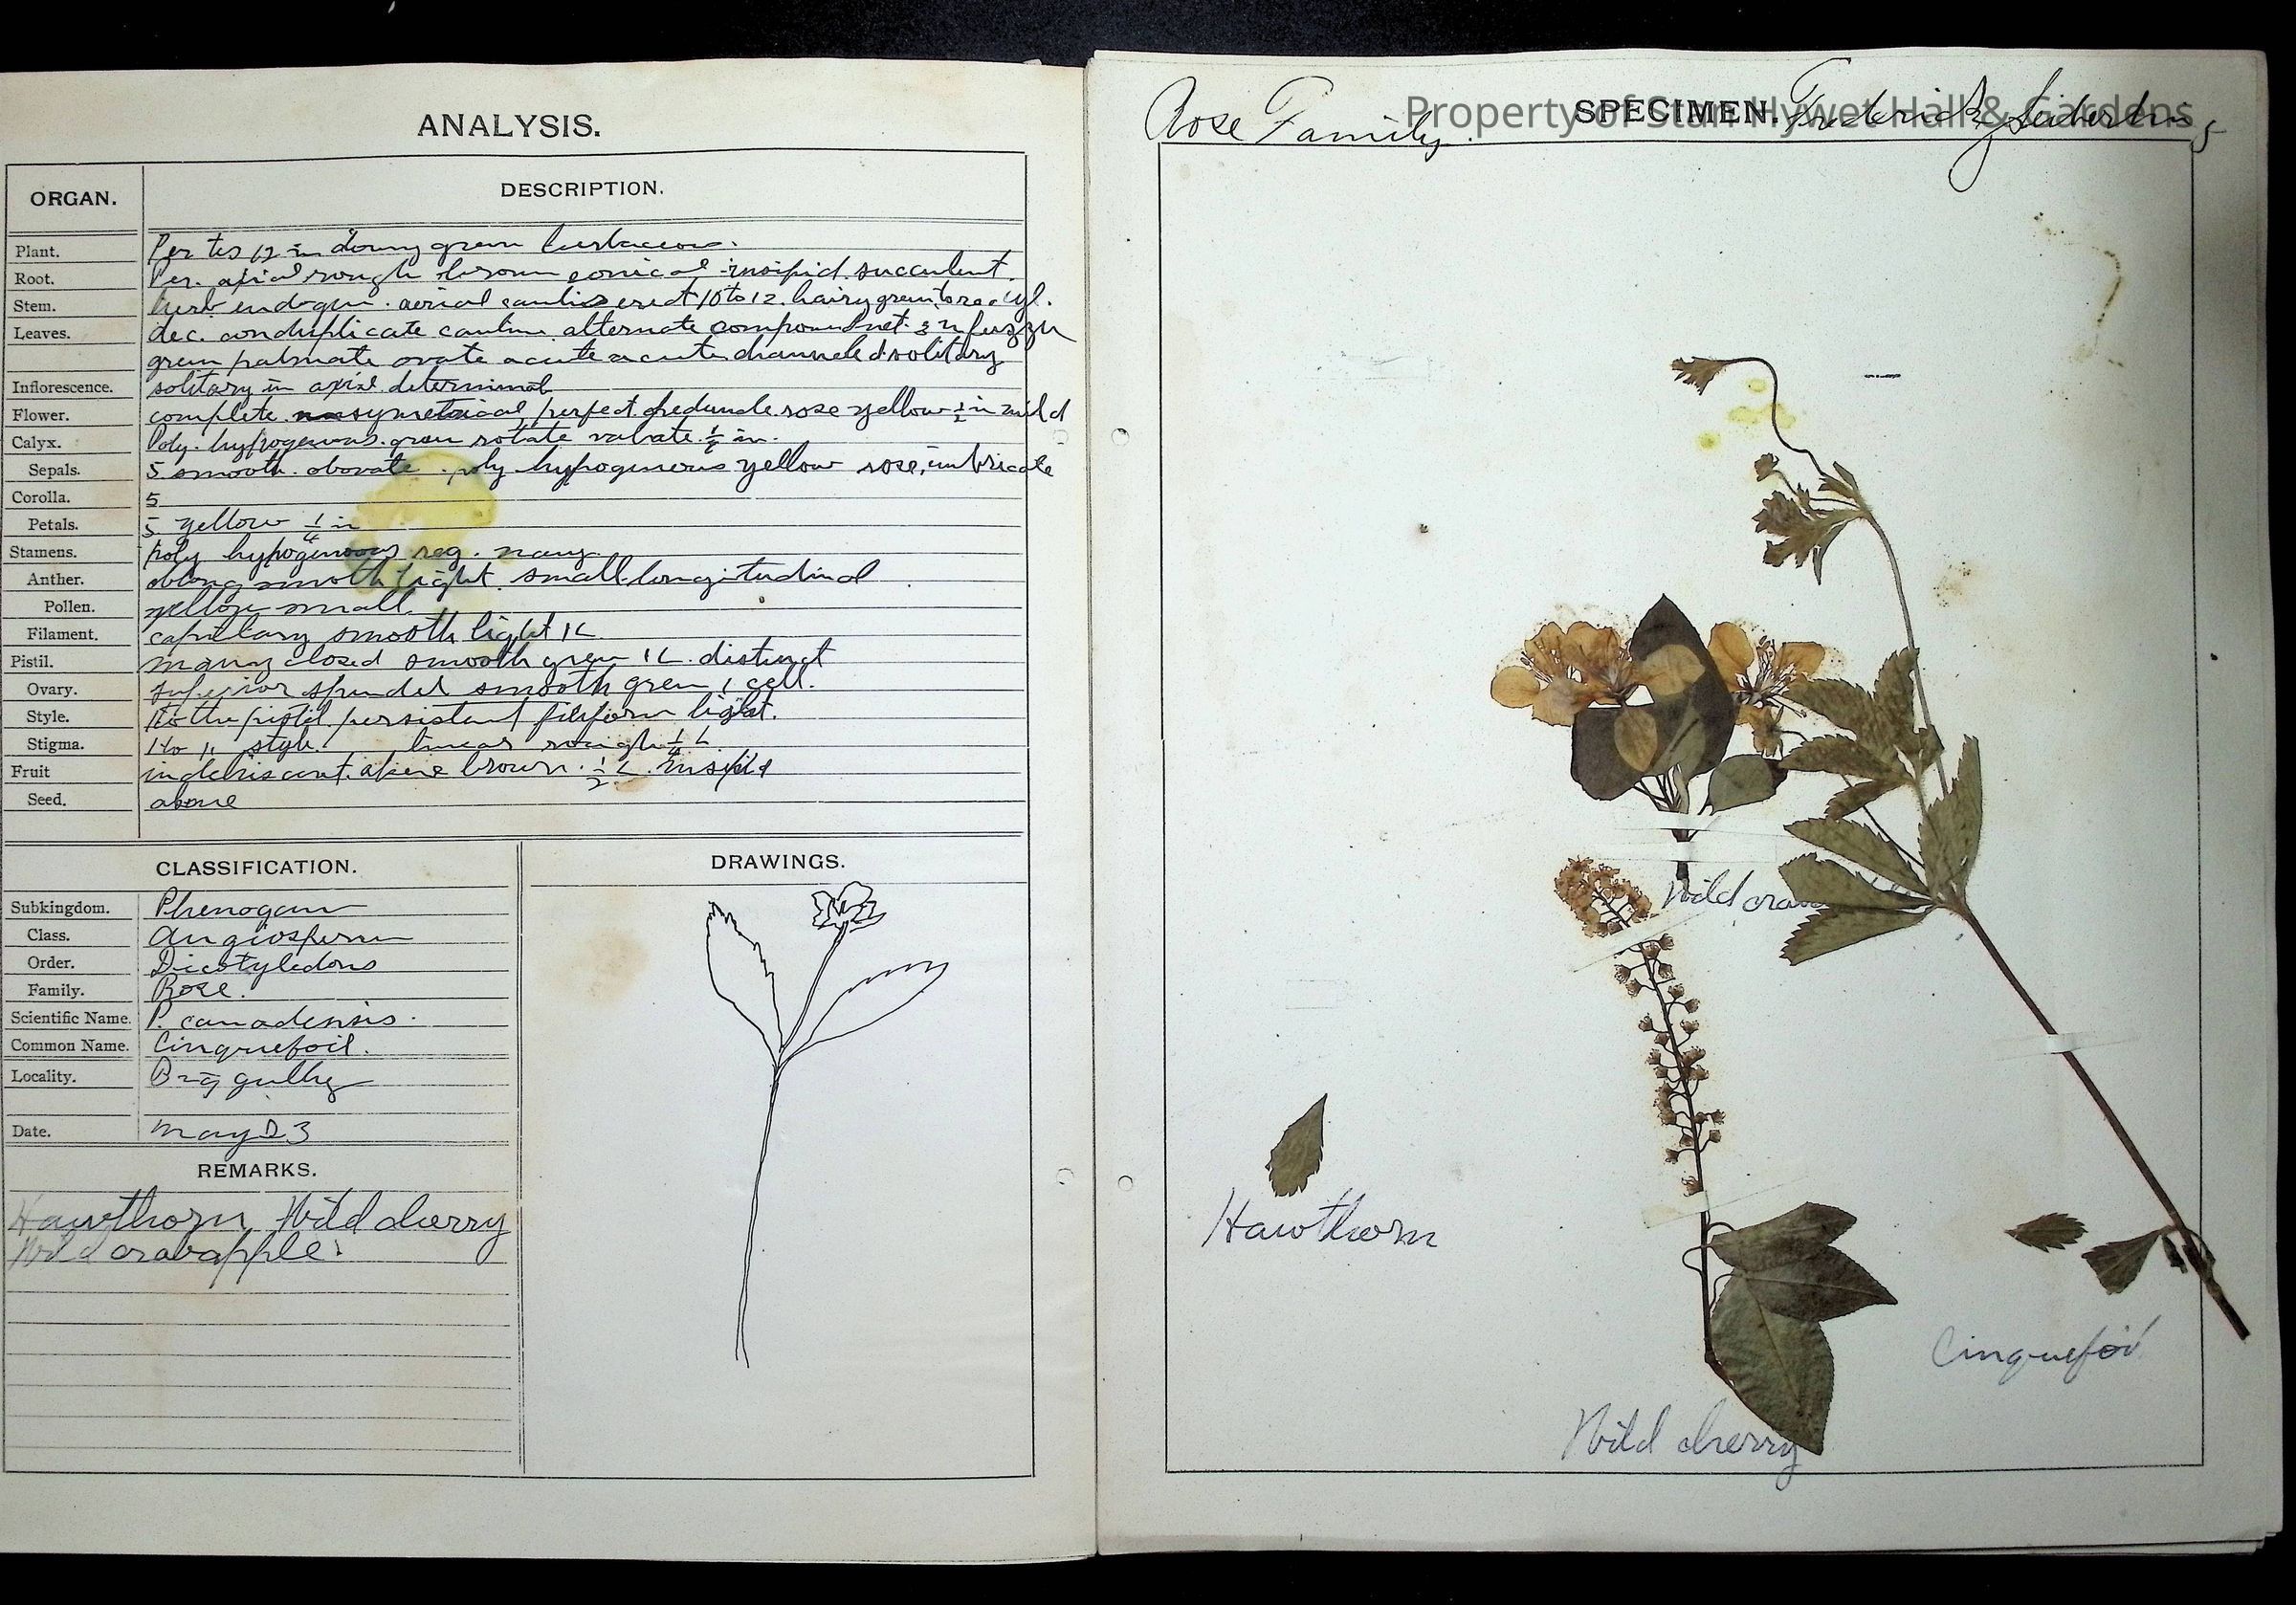 ANALYSIS.
ORGAN. DESCRIPTION.
Plant. 12 in downy green herbaceous.
Root. Per. axial rough brown conical insipid. succulent.
Stem. herb aerial erect 10 to 12. hairy green
Leaves. dec. conduplicate alternate compound net. 3 in fuzzy
green palmate ovate acute acute channeled solitary
Inflorescence. solitary in axial determinal
Flower. complete symetrical perfect peduncle rose yellow ½ in mild
Calyx. Poly. hypogenous. green rotate valvate. in.
Sepals. 5 smooth. obovate. poly hypogenous yellow rose, imbricate
Corolla. 5
Petals. 5 yellow ¼ in
Stamens. poly hypogenous reg. many
Anther. oblong smooth light small longitudinal
Pollen. yellow small.
Filament. capillary smooth light 1L
Pistil. many closed smooth green 1L. distinct
Ovary. superior smooth green 1 cell.
Style. 1 to the pistil persistent filiform light.
Stigma. 1 to " style. linear rough ¼ L.
Fruit indehiscent. akene brown. ½ L. insipid
Seed. above
CLASSIFICATION.
Subkingdom. Phenogam
Class. Angiosperm
Order. Dicotyledons
Family. Rose.
Scientific Name. P. canadensis.
Common Name. Cinquefoil.
Locality. Big gulley
Date. May 23
REMARKS.
Hawthorn, Wild cherry
Wild crabapple.
DRAWINGS.
Rose Family. SPECIMEN. Frederick Seiberling
Property of Stan Hywet Hall & Gardens
Wild
Hawthorn
Cinquefoil
Wild cherry